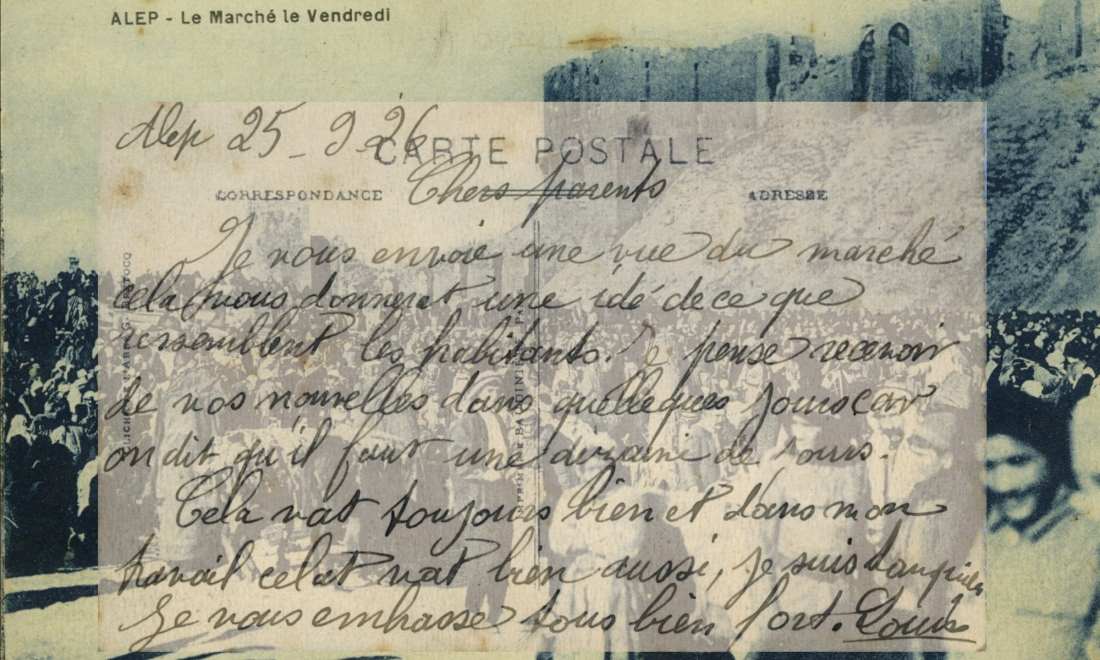 ALEP - Le Marché le Vendredi
Alep 25-9-26
CARTE POSTALE
CORRESPONDANCE
ADRESSE
Chers parents
Je vous envoie une vue du marché
cela vous donnerat une idé de ce que
ressemblent les habitants. Je pense recevoir
de vos nouvelles dans quelleques jours car
on dit qu'il faut une dizaine de jours.
Cela vat toujours bien et dans mon
travail celat vat bien aussi, je suis
Je vous embrasse tous bien fort. Louis